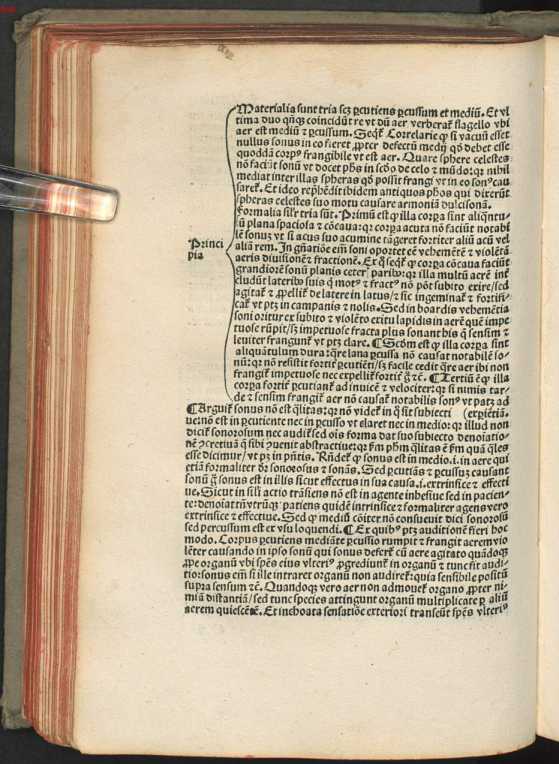 Materialia sunt tria scꝫ ꝑcutiens ꝑcussum et mediū. Et vl
tima duo qn̄qꝫ coincidūt re vt dū aer verberat̄ flagello vbi
aer est mediū ⁊ ꝑcussum. Seqt̄ Correlarie ꝙ si vacuū esset
nullus sonus in eo fieret ꝓpter defectū medij qd̄ debet esse
quoddā corpꝰ frangibile vt est aer. Quare sphere celestes
nō faciūt sonū vt docet ph̄s in scd̄o de celo ⁊ mūdo: qꝛ nihil
mediat inter illas spheras qd̄ possit frangi vt in eo sonꝰ cau
saret̄. Et ideo rep̄hēdit ibidem antiquos ph̄os qui dixerūt
spheras celestes suo motu causare armoniā dulcisonā.
Formalia sil̄r tria sūt. Primū est ꝙ illa corꝑa sint aliqntu-
lū plana spaciosa ⁊ cōcaua: qꝛ corꝑa acuta nō faciūt notabi
lē sonuꝫ vt si acus suo acumine tāgeret fortiter aliū acū vel
aliā rem. In gn̄atiōe em̄ soni oportet eē vehemētē ⁊ violētā
aeris diuisionē ⁊ fractionē. Ex q̄ seqt̄ ꝙ corꝑa cōcaua faciūt
grandiorē sonū planis ceteꝝ paribꝰ: qꝛ illa multū aerē int̄
cludūt lateribꝰ suis q̇ motꝰ ⁊ fractꝰ nō pōt subito exire/ sed
agitat̄ ⁊ ꝓpellit̄ de latere in latus/ ⁊ sic ingeminat̄ ⁊ fortifi-
cat̄ vt ptꝫ in campanis ⁊ nolis. Sed in hoardis vehemētia
soni oritur ex subito ⁊ violēto exitu lapidis in aerē quē impe
tuose rūpit/ sꝫ impetuose fracta plus sonant his q̄ sensim ⁊
leuiter frangunt̄ vt ptꝫ clare. ¶ Scd̄m est ꝙ illa corꝑa sint
aliquātulum dura: qꝛe lana ꝑcussa nō causat notabilē so-
nū: qꝛ nō resistit fortit̄ ꝑcutiēti/ sꝫ facile cedit qꝛe aer ibi non
frangit̄ impetuose nec expellit̄ fortit̄ ḡ ⁊c̄. ¶ Tertiū ē ꝙ illa
corꝑa fortit̄ ꝑcutiant̄ ad inuicē ⁊ velociter: qꝛ si nimis tar-
de ⁊ sensim frangit̄ aer nō causat̄ notabilis sonꝰ vt patꝫ ad
Princi
pia
¶ Arguit̄ sonus nō est q̄litas: qꝛ nō videt̄ in q̄ sit subiecti (exꝑiētiā.
ue: nō est in ꝑcutiente nec in ꝑcusso vt claret nec in medio: qꝛ illud non
dicit̄ sonorosum nec audit̄ sed oīs forma dat suo subiecto denoīatio-
nē ↄcretiuā q̄ sibi ↄuenit abstractiue: qꝛ fm̄ ph̄m q̄litas ē fm̄ quā q̄les
esse dicimur/ vt pꝫ in pn̄tis. Rn̄det̄ ꝙ sonus est in medio. i. in aere qui
etiā formaliter dꝛ sonorosus ⁊ sonās. Sed ꝑcutiās ⁊ ꝑcussuꝫ causant
sonū ḡ sonus est in illis sicut effectus in sua causa. i. extrinsice ⁊ effecti
ue. Sicut in sil̄i actio trāsiens nō est in agente inhesiue sed in pacien-
te: denoīat tn̄ vtrūqꝫ: patiens quidē intrinsice ⁊ formaliter agens vero
extrinsice ⁊ effectiue. Sed ꝙ mediū cōiter nō consueuit dici sonorosū
sed percussum est ex vsu loquendi. ¶ Ex quibꝰ ptꝫ auditionē fieri hoc
modo. Corpus ꝑcutiens mediāte ꝑcussio rumpit ⁊ frangit aerem vio
lēter causando in ipso sonū qui sonus defert̄ cū aere agitato quādoqꝫ
ꝓpe organū vbi spēs eius vlteriꝰ ꝓgrediunt̄ in organū ⁊ tunc fit audi-
tio: sonus em̄ si ille intraret organū non audiret̄: quia sensibile positū
supra sensum ⁊c̄. Quandoqꝫ vero aer non admouet̄ organo ꝓpter ni-
miā distantiā/ sed tunc species attingunt organū multiplicate ꝑ aliū
aerem quiescētē. Et inchoata sensatiōe exteriori transeūt spēs vlteriꝰ